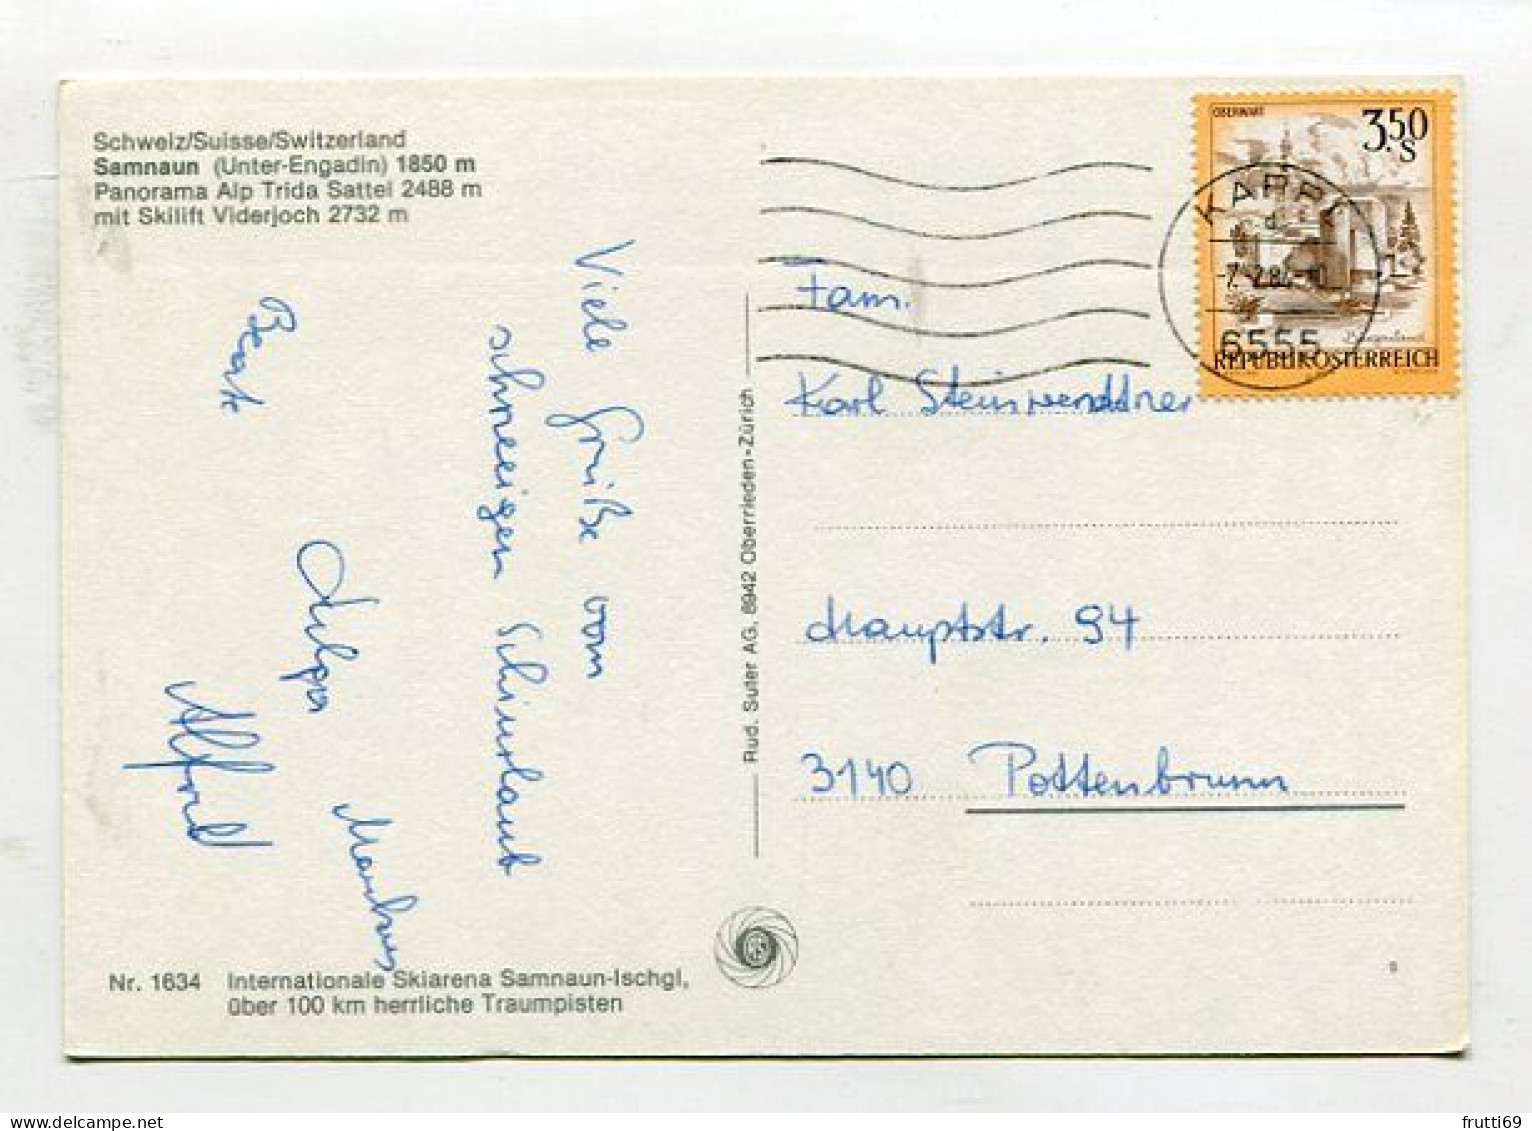 Schweiz/Suisse/Switzerland
Samnaun (Unter-Engadin) 1850 m
Panorama Alp Trida Sattel 2488 m
mit Skilift Viderjoch 2732 m
Viele Grüße vom
schneeigen Schiurlaub
Beate
Helga
Markus
Alfred
Nr. 1634 Internationale Skiarena Samnaun-Ischgl,
über 100 km herrliche Traumpisten
Rud. Suter AG, 8942 Oberrieden-Zürich
OBERWART
3.50
S
Burgenland
REPUBLIK ÖSTERREICH
KAPPL
d
6555
Fam.
Karl Steinwendtner
Hauptstr. 94
3140 Pottenbrunn
frutti69